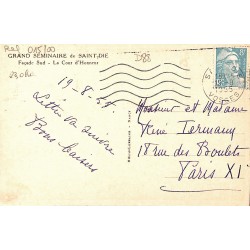 Réf 015/00
D88
GRAND SÉMINAIRE de SAINT-DIÉ
Façade Sud - La Cour d'Honneur
19-8-55
Lettre va suivre
Bons baisers
Monsieur et Madame
René Termany
18 rue des Boulets
Paris XI
VOSGES